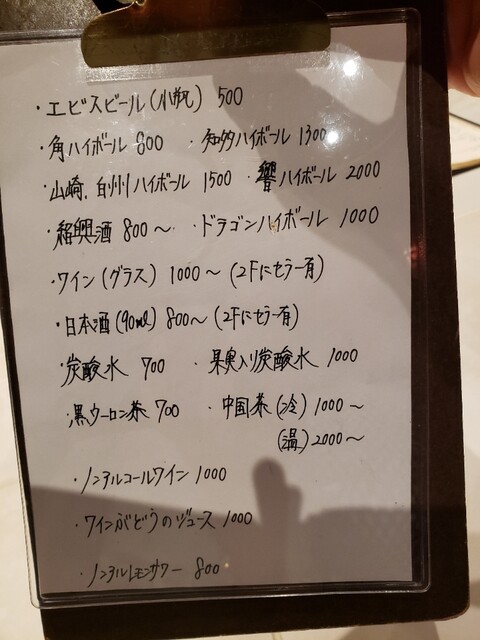 ・エビスビール(小瓶) 500
・角ハイボール 800 ・知多ハイボール 1300
・山崎、白州ハイボール 1500 ・響ハイボール 2000
・紹興酒 800～ ・ドラゴンハイボール 1000
・ワイン(グラス) 1000～(2Fにセラー有)
・日本酒(90ml) 800～(2Fにセラー有)
・炭酸水 700 ・果実入り炭酸水 1000
・黒ウーロン茶 700 ・中国茶(冷) 1000～
(温) 2000～
・ノンアルコールワイン 1000
・ワインぶどうのジュース 1000
・ノンアルレモンサワー 800